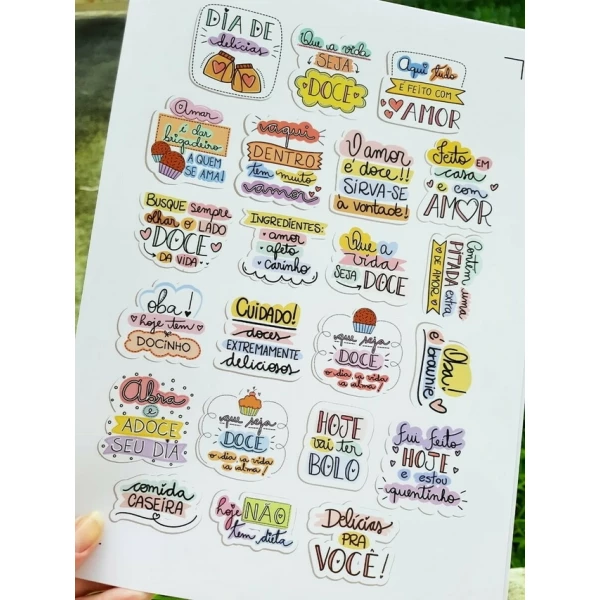 DIA DE
delícias
Que a vida
SEJA
DOCE
Aqui tudo
É FEITO COM
AMOR
Amar
é dar
brigadeiro
A QUEM
SE AMA!
aqui
DENTRO
tem muito
amor
O amor
é doce!!
SIRVA-SE
à vontade!
Feito EM
casa
e com
AMOR
BUSQUE sempre
olhar O LADO
DOCE
DA VIDA
INGREDIENTES:
• amor
• afeto
• carinho
Que a
vida
SEJA DOCE
Contém uma
PITADA extra
DE AMOR
oba!
hoje tem
DOCINHO
CUIDADO!
doces
EXTREMAMENTE
deliciosos
que seja
DOCE
o dia, a vida
a alma!
Oba!
é brownie
Abra
e
ADOCE
SEU DIA
que seja
DOCE
o dia, a vida
a alma!
HOJE
vai ter
BOLO
Fui feito
HOJE
e estou
quentinho
comida
CASEIRA
hoje NÃO
tem dieta
Delícias
PRA
VOCÊ!